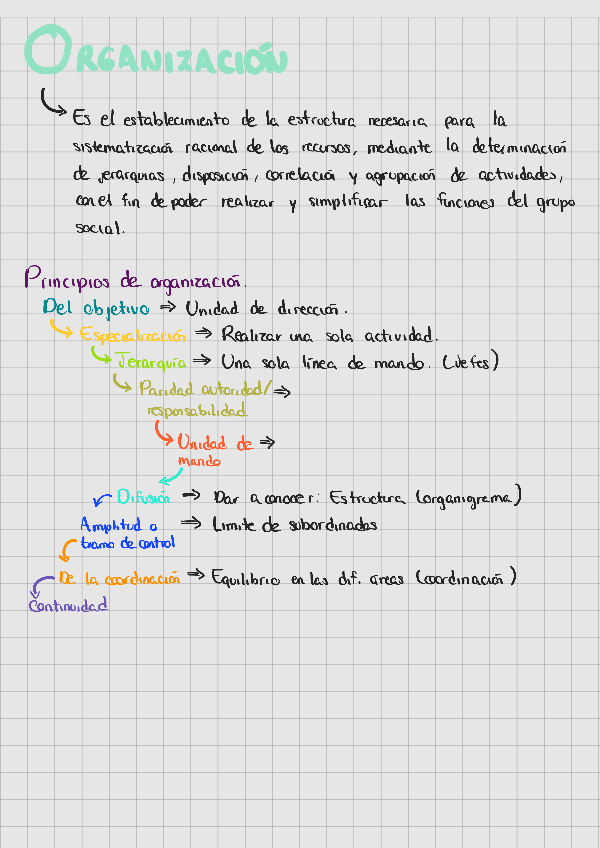 ORGANIZACIÓN
Es el establecimiento de la estructura necesaria para la
sistematización racional de los recursos, mediante la determinación
de jerarquías, disposición, correlación y agrupación de actividades,
con el fin de poder realizar y simplificar las funciones del grupo
social.
Principios de organización.
Del objetivo ⇒ Unidad de dirección.
Especialización ⇒ Realizar una sola actividad.
Jerarquía ⇒ Una sola línea de mando. (Jefes)
Paridad autoridad/ ⇒
responsabilidad
Unidad de ⇒
mando
Difusión ⇒ Dar a conocer: Estructura (organigrama)
Amplitud o ⇒ Limite de subordinados
tramo de control
De la coordinación ⇒ Equilibrio en las dif. áreas (coordinación)
Continuidad